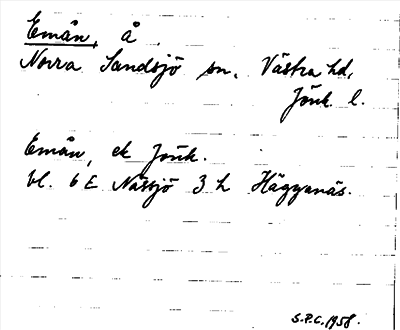 Emån, å
Norra Sandsjö sn. Västra hd,
Jönk. l.
Emån, ek Jönk.
bl. 6 E Nässjö 3 h Häggnäs.
S.P.C. 1958.